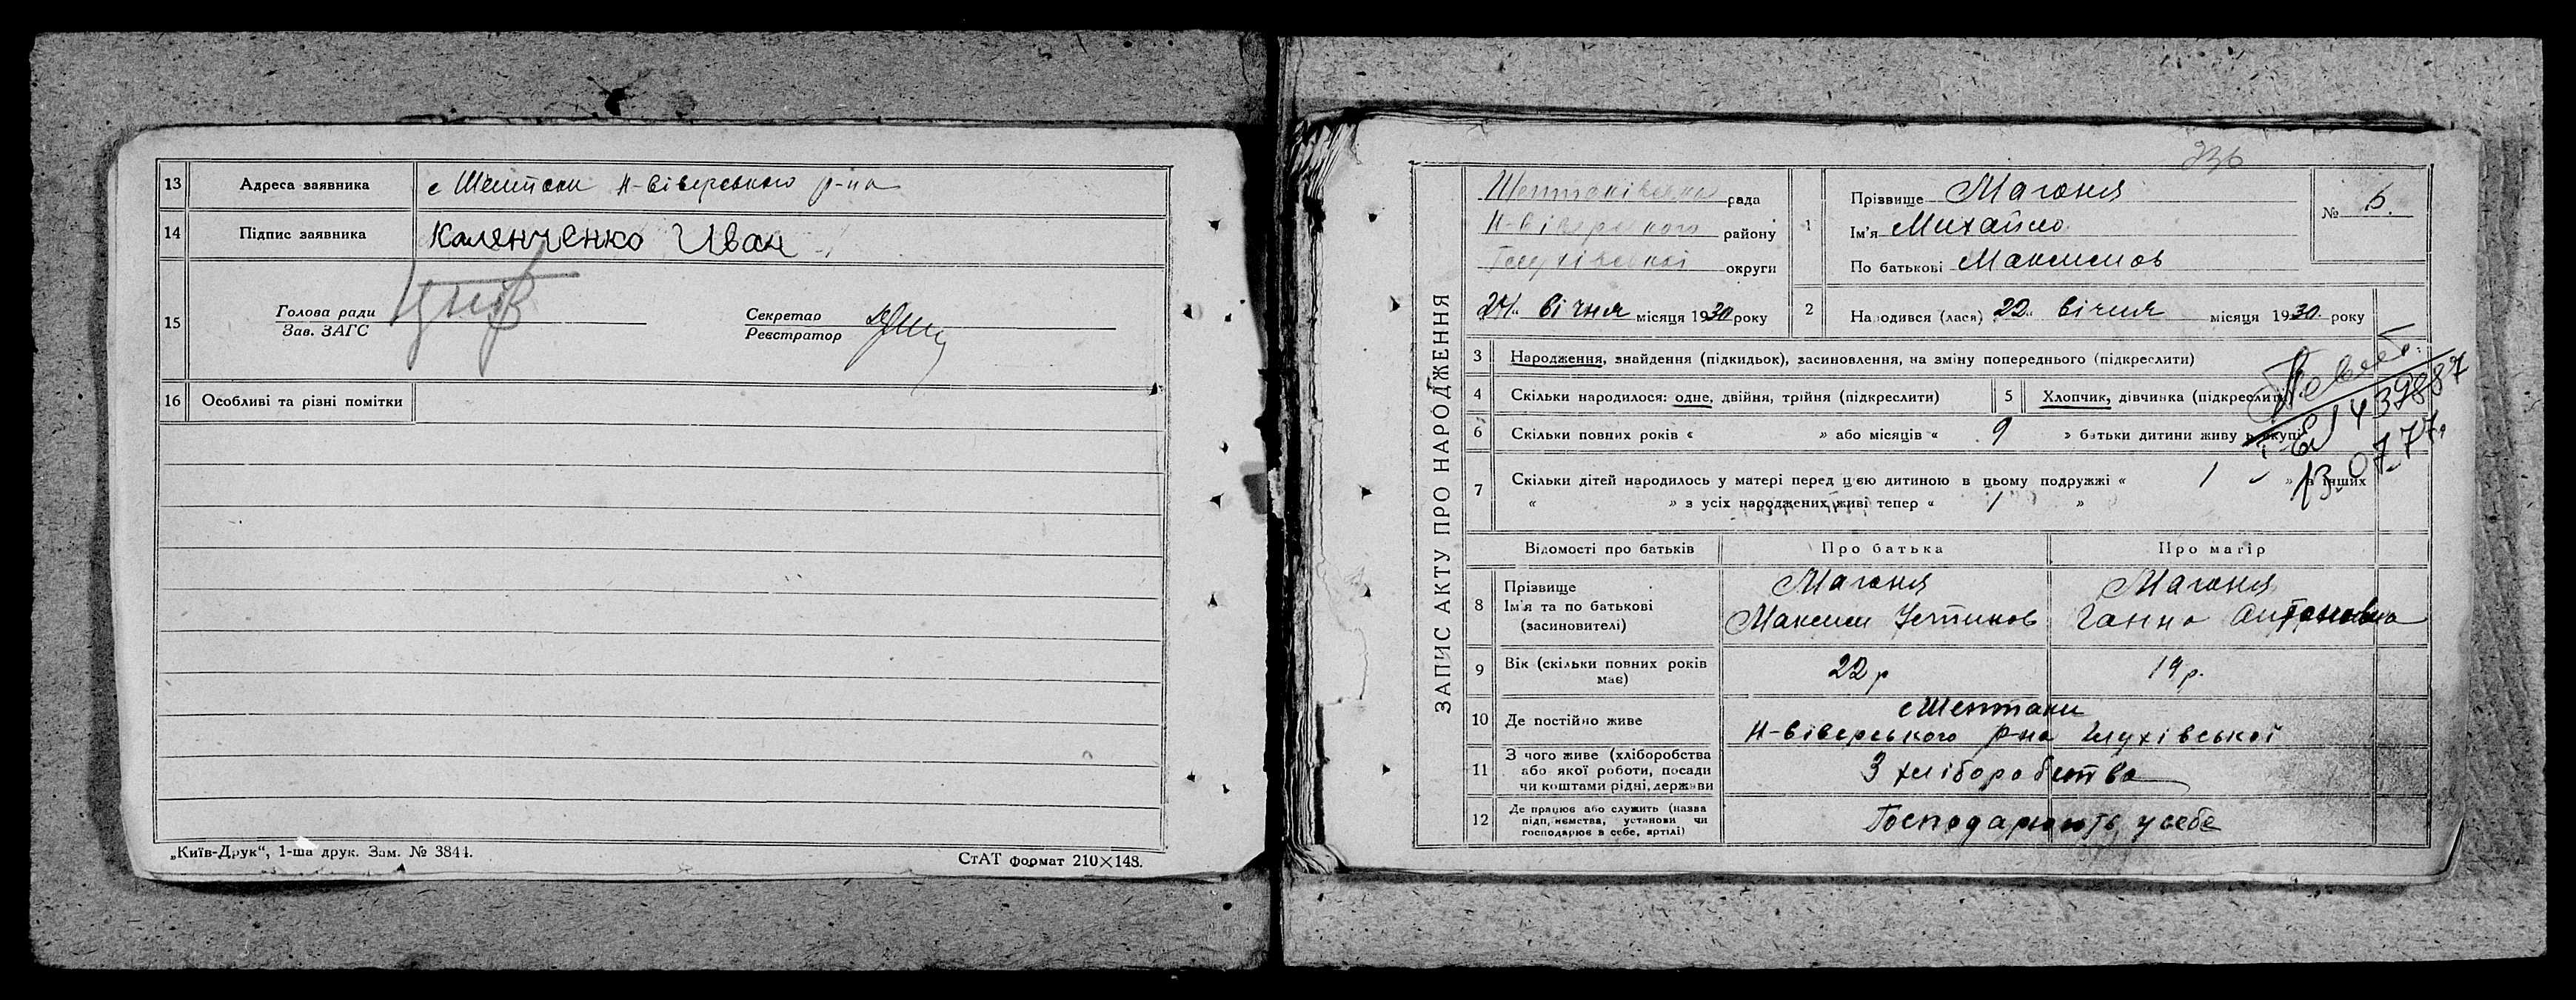 13 Адреса заявника с Шептаки Н-Сіверського р-на
14 Підпис заявника Каленченко Иван
15 Голова ради
Зав. ЗАГС
Секретар
Реєстратор
16 Особливі та різні помітки
„Київ-Друк“, 1-ша друк. Зам. № 3844.
СтАТ формат 210×148.
236
ЗАПИС АКТУ ПРО НАРОДЖЕННЯ
Шептаківська рада
Н-Сіверського району
Глухівської округи
24 Січня місяця 1930 року
1 Прізвище Магоня
Ім'я Михайло
По батькові Максимов
№ 6.
2 Народився (лася) 22 Січня місяця 1930 року
3 Народження, знайдення (підкидьок), засиновлення, на зміну попереднього (підкреслити)
4 Скільки народилося: одне, двійня, трійня (підкреслити) 5 Хлопчик, дівчинка (підкреслити)
6 Скільки повних років « » або місяців « 9 » батьки дитини живу вкупі
7 Скільки дітей народилось у матері перед цією дитиною в цьому подружжі « 1 » в інших
« » з усіх народжених живі тепер « 1 »
439887
13.07.77.
Відомості про батьків Про батька Про матір
8 Прізвище
Ім'я та по батькові
(засиновителі)
Магоня
Максим Устинов
Магоня
Ганна Антоновна
9 Вік (скільки повних років
має)
22 р
19 р.
10 Де постійно живе
с Шептаки
Н-Сіверського р-на Глухівської
11 З чого живе (хліборобства
або якої роботи, посади
чи коштами рідні, держави
З хліборобства
12 Де працює або служить (назва
підприємства, установи чи
господарює в себе, артілі)
Господарюють у себе